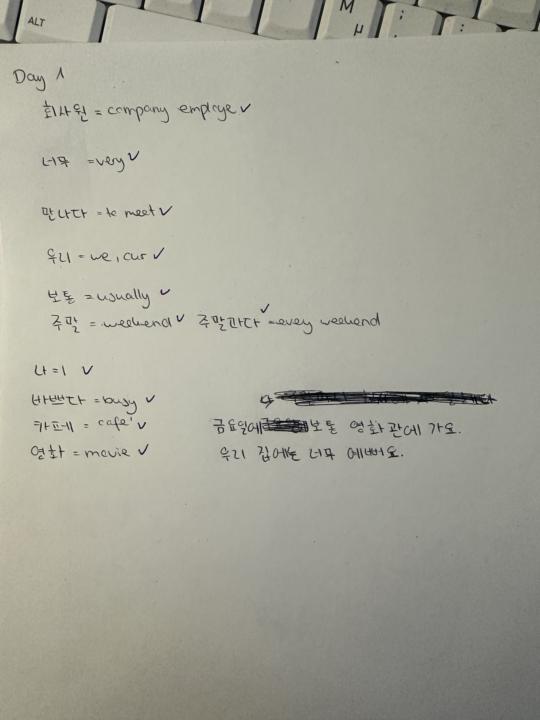 ALT
M
µ
;
:
Day 1
회사원 = company employe ✓
너무 = very ✓
만나다 = to meet ✓
우리 = we, our ✓
보통 = usually ✓
주말 = weekend ✓ 주말마다 = evey weekend ✓
나 = I ✓
바쁘다 = busy ✓
카페 = café ✓
금요일에 보통 영화관에 가요.
영화 = movie ✓
우리 집에는 너무 예뻐요.